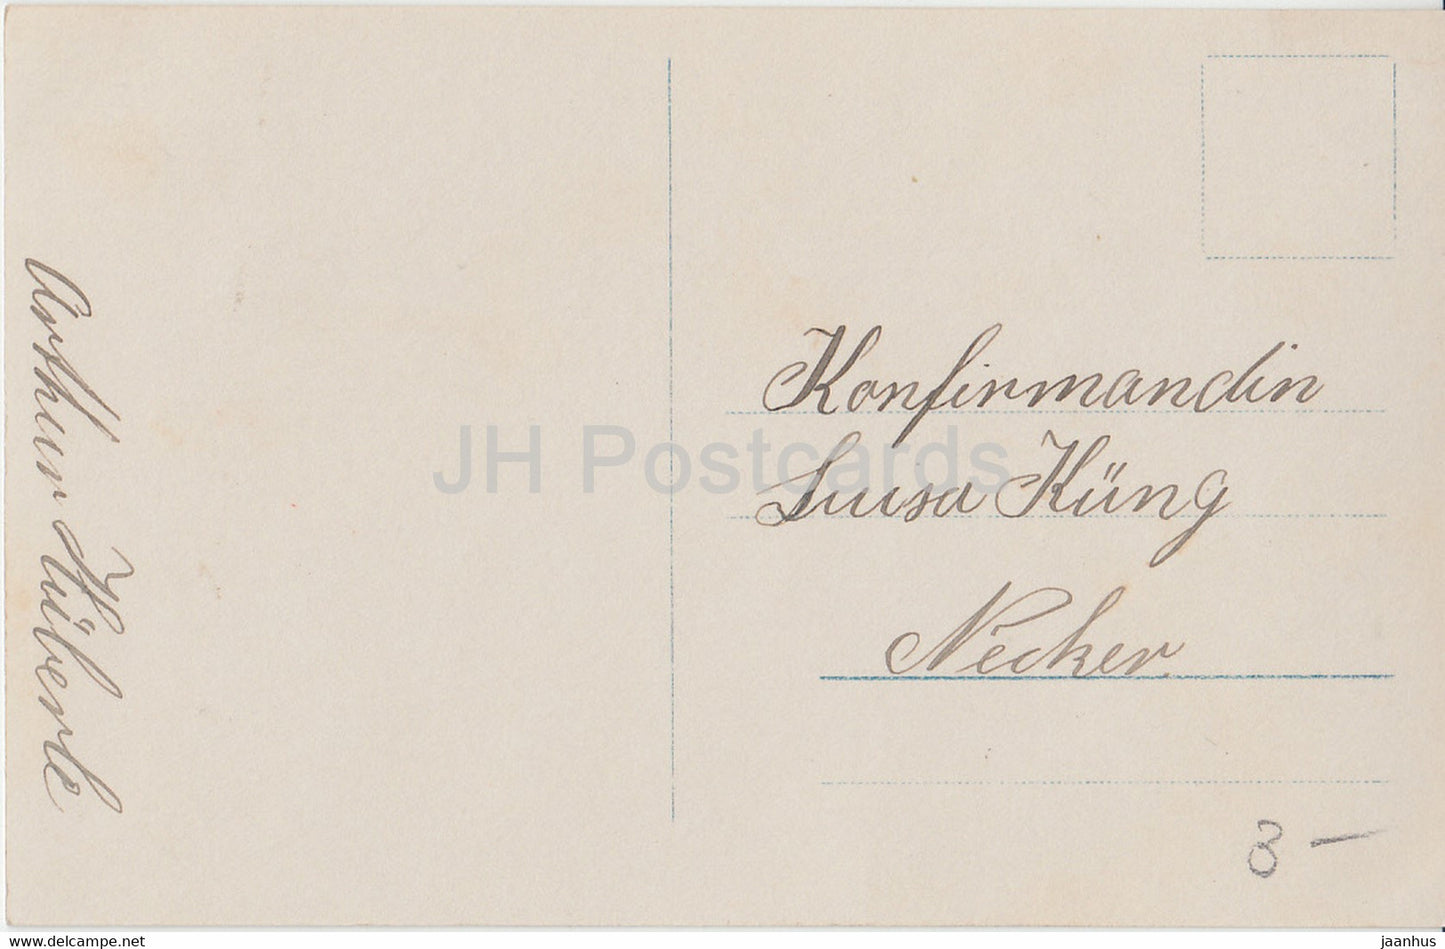 Arthur Hüberle
Konfirmandin
Luisa Küng
Necker.
8 —
JH Postcards
www.delcampe.net
jaanhus